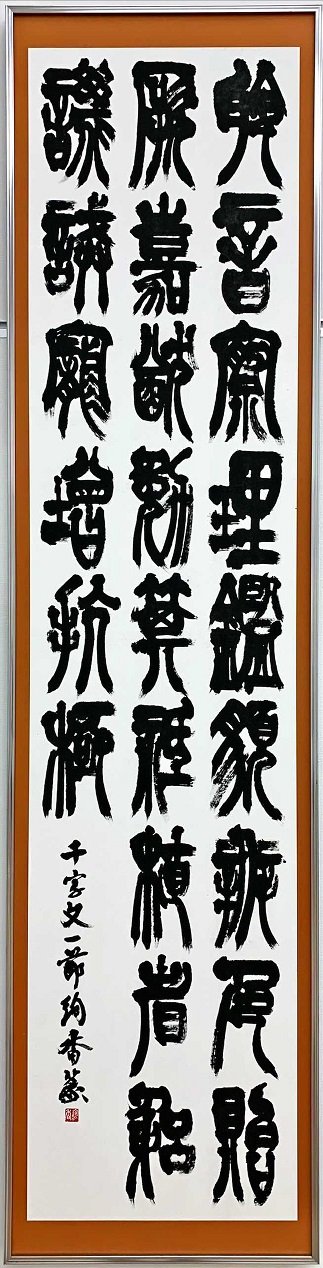 聆音察理鑑貌辨色貽
厥嘉猷勉其祗植省躬
譏誡寵增抗極
千字文一節絢香篆